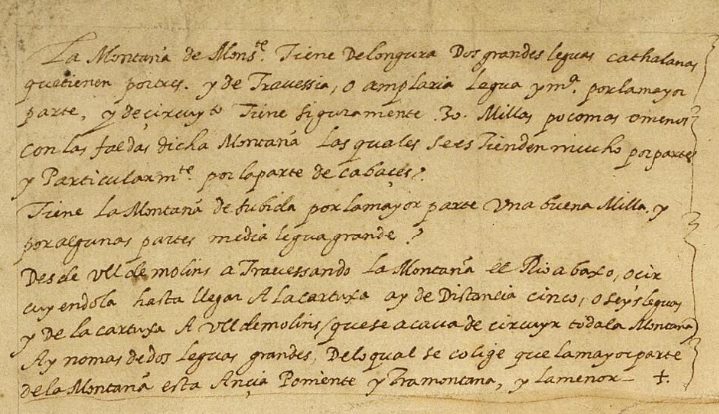 La Montaña de Mons.te Tiene De longura Dos grandes leguas cathalanas
que tienen por tres. y de Travessia, o amplaria legua y m.a por la mayor
parte, y de çircuyto Tiene siguramente 30. Millas poco mas o menos
con las faldas dicha Montaña Las quales se esTienden mucho por partes
y Particularm.te por la parte de cabaçes.
Tiene La Montaña de subida por la mayor parte Una buena Milla. y
por algunas partes media legua grande.
Desde Vlldemolins aTravessando La Montaña el Rio abaxo, o cir
cuyendola hasta llegar A La cartuxa ay de Distancia cinco, o seys leguas
y De la cartuxa A Vlldemolins/ que se acava de circuyr toda la Montaña
Ay no mas de dos Leguas grandes. De lo qual se colige que la mayor parte
de la Montaña esta Ançia Poniente y Tramontana, y la menor — +.